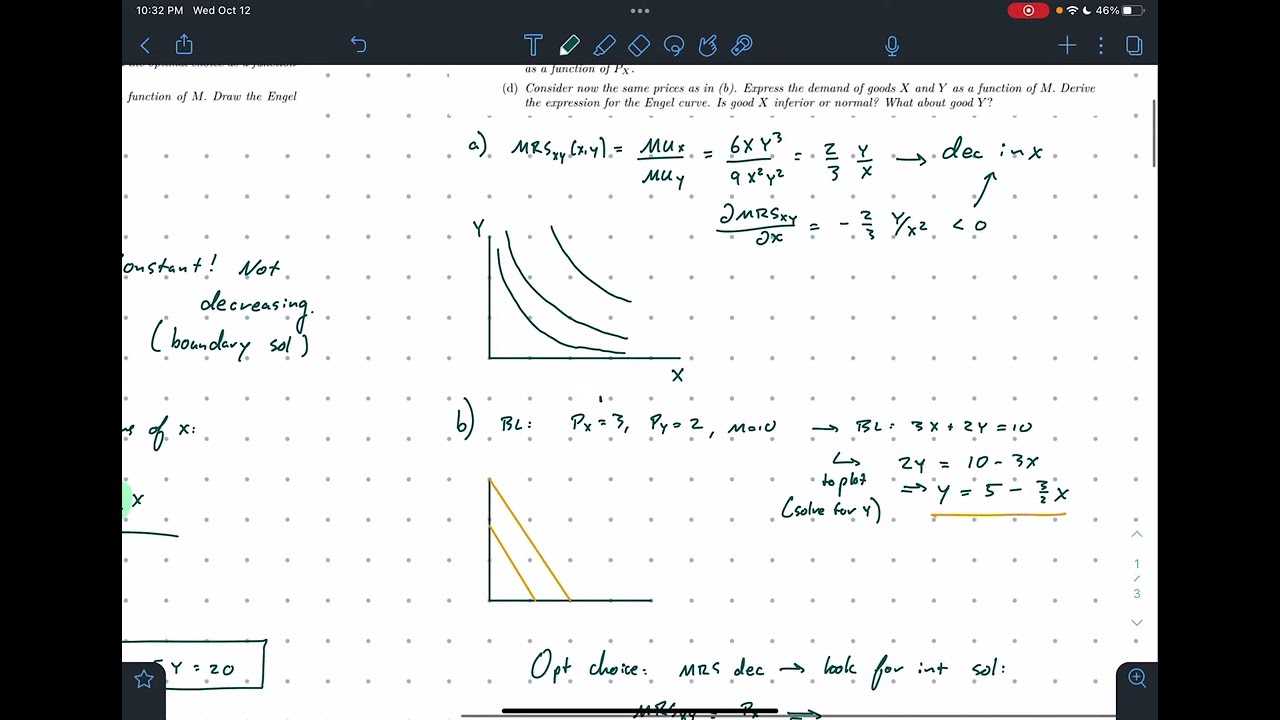 10:32 PM Wed Oct 12
46%
as a function of P_X.
function of M. Draw the Engel
(d) Consider now the same prices as in (b). Express the demand of goods X and Y as a function of M. Derive
the expression for the Engel curve. Is good X inferior or normal? What about good Y?
a) MRS_xy(x,y) = MU_x / MU_y = 6XY³ / 9X²Y² = 2/3 Y/X → dec in X
∂MRS_xy / ∂x = - 2/3 Y/X² < 0
Y
X
Constant! Not
decreasing.
(boundary sol)
of x:
x
5Y = 20
b) BL: P_X = 3, P_Y = 2, M=10 → BL: 3X + 2Y = 10
↳ 2Y = 10 - 3X
to plot
(solve for Y)
⇒ Y = 5 - 3/2 X
1
/
3
Opt choice: MRS dec → look for int sol:
MRS_xy = P_X ⇒